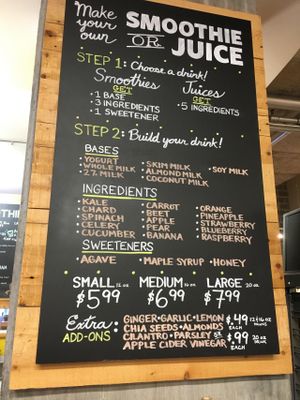 Make your own SMOOTHIE OR JUICE
STEP 1: Choose a drink!
Smoothies Juices
GET GET
• 1 BASE • 5 INGREDIENTS
• 3 INGREDIENTS
• 1 SWEETENER
STEP 2: Build your drink!
BASES
• YOGURT • SKIM MILK • SOY MILK
• WHOLE MILK • ALMOND MILK
• 2% MILK • COCONUT MILK
INGREDIENTS
• KALE • CARROT • ORANGE
• CHARD • BEET • PINEAPPLE
• SPINACH • APPLE • STRAWBERRY
• CELERY • PEAR • BLUEBERRY
• CUCUMBER • BANANA • RASPBERRY
SWEETENERS
• AGAVE • MAPLE SYRUP • HONEY
SMALL 12 oz MEDIUM 16 oz LARGE 20 oz
$5.99 $6.99 $7.99
Extra ADD-ONS
GINGER • GARLIC • LEMON $.49 EACH 12 & 16 oz DRINKS
CHIA SEEDS • ALMONDS
CILANTRO • PARSLEY or $.99 EACH 20 oz DRINK
APPLE CIDER VINEGAR